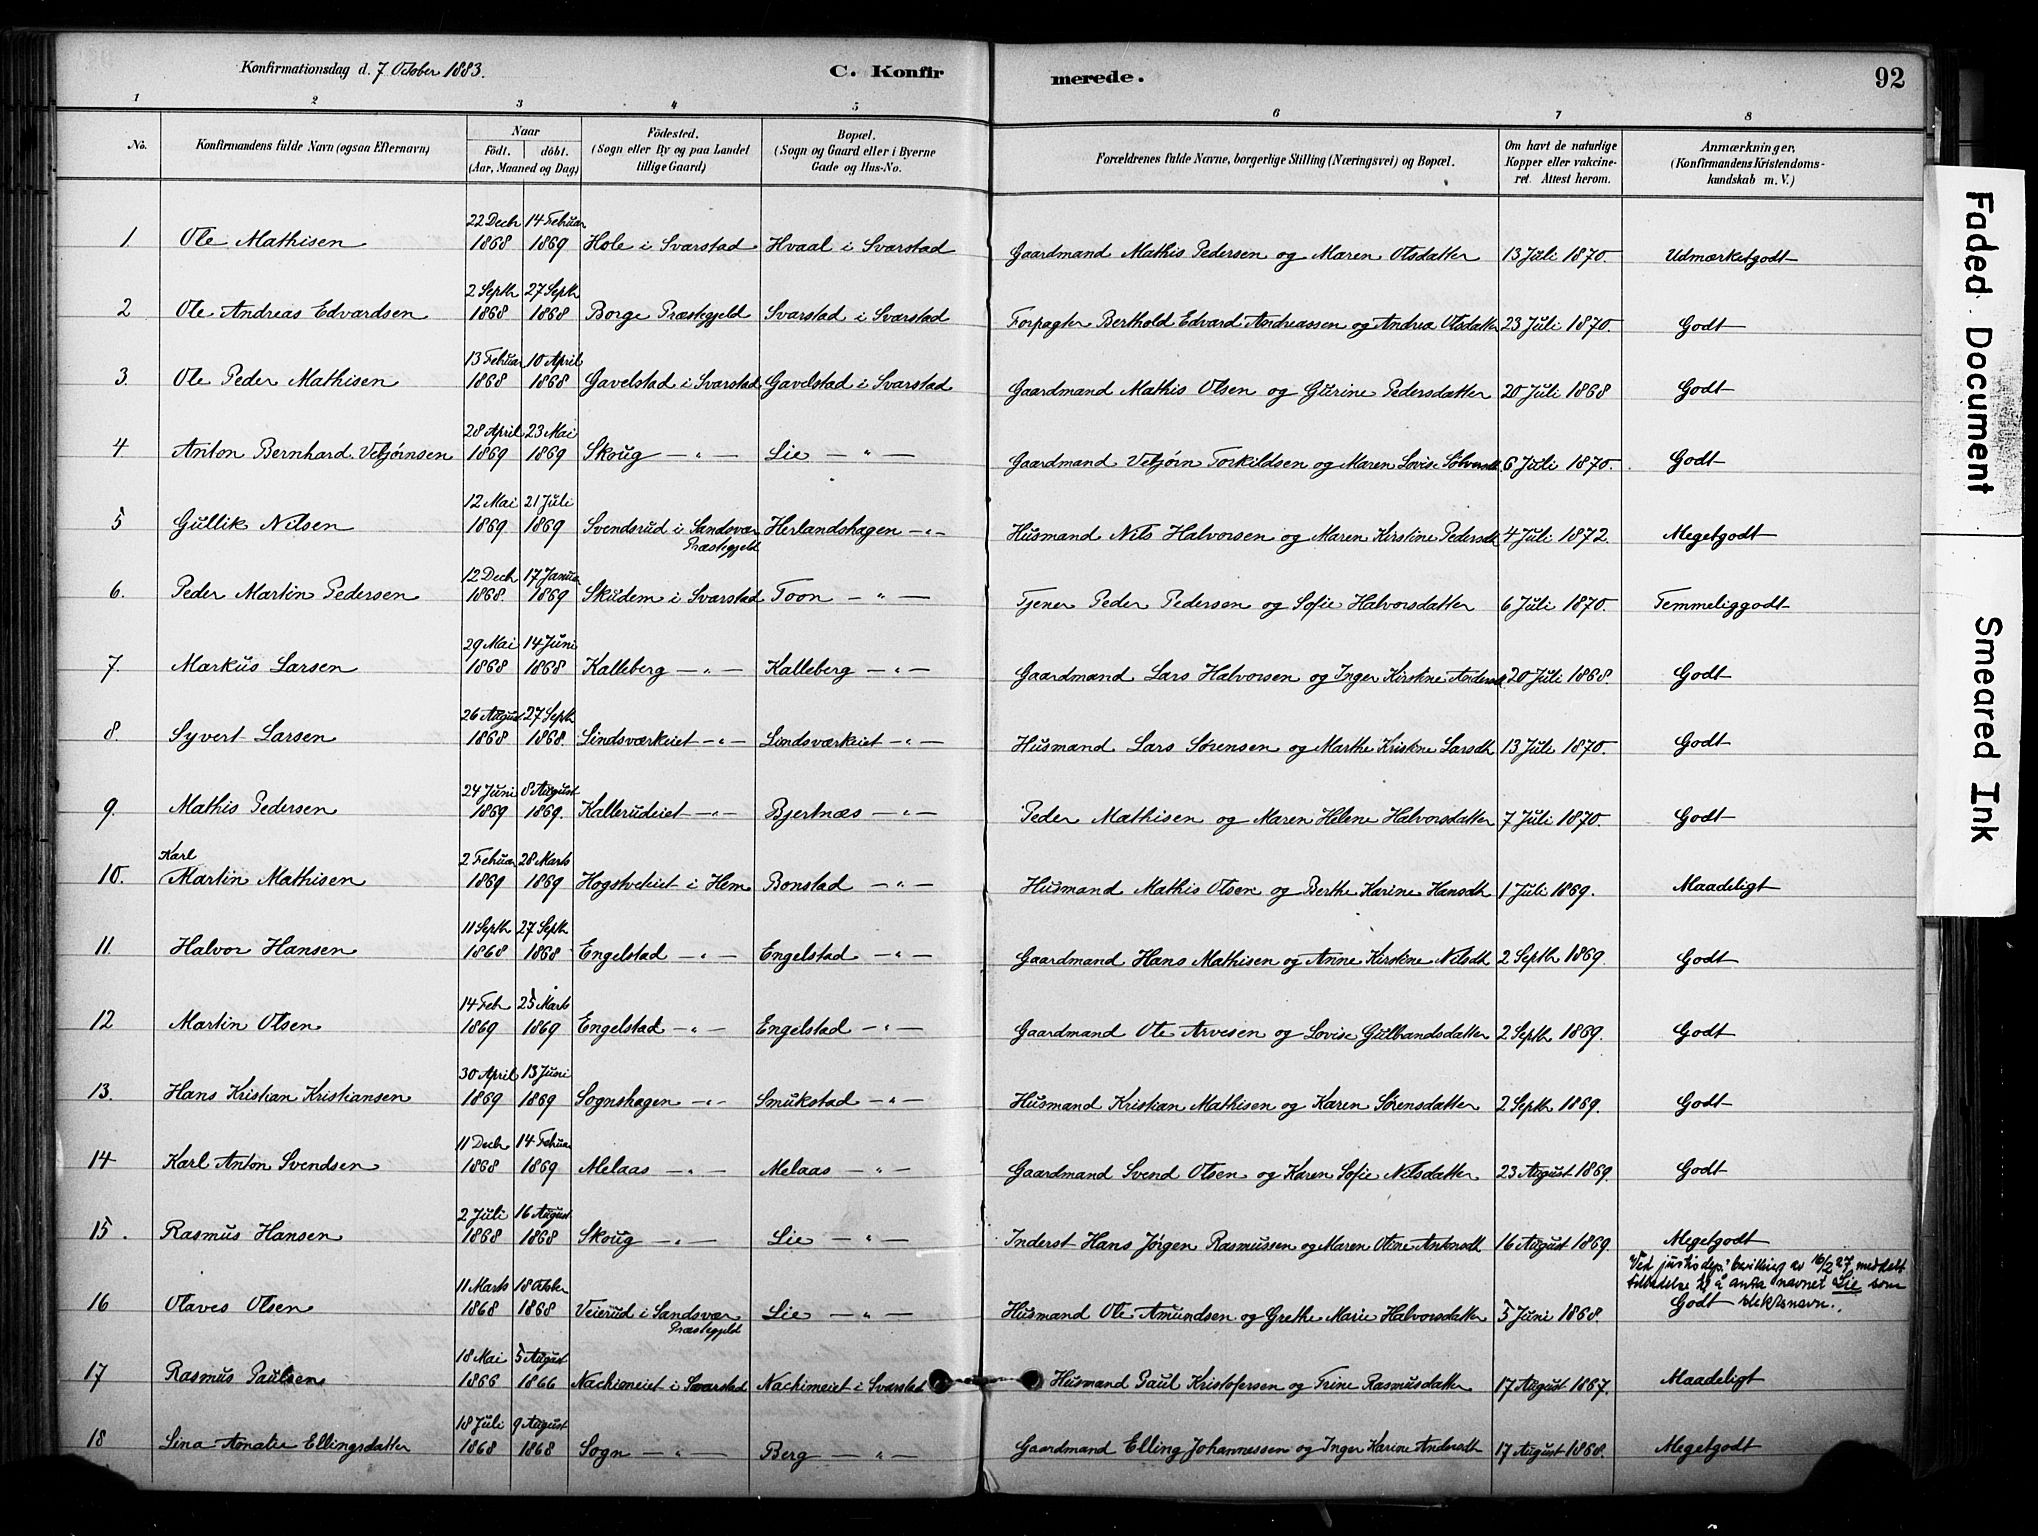 Konfirmationsdag d. 7 October 1883.
C. Konfirmerede.
92
1 2 3 4 5 6 7 8
No.
Konfirmandens fulde Navn (ogsaa Efternavn)
Naar
Födt. döbt.
(Aar, Maaned og Dag)
Födested.
(Sogn eller By og paa Landet
tillige Gaard)
Bopæl.
(Sogn og Gaard eller i Byerne
Gade og Hus-No.
Forældrenes fulde Navne, borgerlige Stilling (Næringsvei) og Bopæl.
Om havt de naturlige
Kopper eller vakcine-
ret. Attest herom.
Anmærkninger,
(Konfirmandens Kristendoms-
kundskab m. V.)
1 Ole Mathisen 22 Decb 1868 14 Februar 1869 Hole i Svarstad Hvaal i Svarstad Gaardmand Mathis Pedersen og Maren Olsdatter 13 Juli 1870. Udmærketgodt
2 Ole Andreas Edvardsen 2 Septb 1868 27 Septb 1868 Borge Præstegjeld Svarstad i Svarstad Forpagter Berthold Edvard Andreassen og Andrea Olsdatter 23 Juli 1870. Godt
3. Ole Peder Mathisen 13 Februar 1868 10 April 1868 Gavelstad i Svarstad Gavelstad i Svarstad Gaardmand Mathis Olsen og Gurine Pedersdatter 20 Juli 1868 Godt
4 Anton Bernhard Vebjörnsen 28 April 1869 23 Mai 1869 Skoug — " — Lie — " — Gaardmand Vebjörn Torkildsen og Maren Lovise Sölversdt 6 Juli 1870. Godt
5 Gullik Nilsen 12 Mai 1869 21 Juli 1869 Svendsrud i Sandsvær Præstegjeld Herlandshagen — " — Husmand Nils Halvorsen og Maren Kirstine Pedersdt 4 Juli 1872. Megetgodt
6. Peder Martin Pedersen 12 Decb 1868. 17 Januar 1869 Skudem i Svarstad Toon — " — Tjener Peder Pedersen og Sofie Halvorsdatter 6 Juli 1870. Temmeliggodt
7. Markus Larsen 29 Mai 1868 14 Juni 1868 Kalleberg — " — Kalleberg — " — Gaardmand Lars Halvorsen og Inger Kirstine Andersdt 20 Juli 1868. Godt
8. Syvert Larsen 26 August 1868 27 Septb 1868. Lindsværkeiet — " — Lindsværkeiet — " — Husmand Lars Sörensen og Marthe Kirstine Larsdt 13 Juli 1870. Godt
9. Mathis Pedersen 24 Juni 1869 8 August 1869. Kallerudeiet — " — Bjertnæs — " — Peder Mathisen og Maren Helene Halvorsdatter 7 Juli 1870. Godt
10. Karl Martin Mathisen 2 Februar 1869 28 Marts 1869 Hogstveteiet i Hem Bonstad — " — Husmand Mathis Olsen og Berthe Karine Hansdt 1 Juli 1869. Maadeligt
11. Halvor Hansen 11 Septb 1868 27 Septb 1868 Engelstad — " — Engelstad — " — Gaardmand Hans Mathisen og Anne Kirstine Nilsdt 2 Septb 1869. Godt
12 Martin Olsen 14 Feb 1869 25 Marts 1869 Engelstad — " — Engelstad — " — Gaardmand Ole Arvesen og Lovise Gulbrandsdatter 2 Septb 1869. Godt
13. Hans Kristian Kristiansen 30 April 1869 13 Juni 1869 Sognshagen — " — Smukstad — " — Husmand Kristian Mathisen og Karen Sörensdatter 2 Septb 1869. Godt
14 Karl Anton Svendsen 11 Decb 1868 14 Februar 1869 Melaas — " — Melaas — " — Gaardmand Svend Olsen og Karen Sofie Nilsdatter 23 August 1869. Godt
15. Rasmus Hansen 2 Juli 1868 16 August 1868 Skoug — " — Lie — " — Inderst Hans Jörgen Rasmussen og Maren Oline Antonsdt 16 August 1869. Megetgodt
Ved justisdep.s bevilling av 16/2 27 meddelt
tilladelse til å anta navnet Lie som
slektsnavn.
16 Olaves Olsen 11 Marts 1868 18 Octber 1868 Veierud i Sandsvær Præstegjeld Lie — " — Husmand Ole Amundsen og Grethe Marie Halvorsdatter 5 Juni 1868. Godt
17 Rasmus Paulsen 18 Mai 1866 5 August 1866 Nachimeiet i Svarstad Nachimeiet i Svarstad Husmand Paul Kristofersen og Trine Rasmusdatter 17 August 1867. Maadeligt
18 Lina Amalie Ellingsdatter 18 Juli 1868 9 August 1868 Sogn — " — Berg — " — Gaardmand Elling Johannessen og Inger Karine Andersdt 17 August 1868. Megetgodt
Faded Document
Smeared Ink